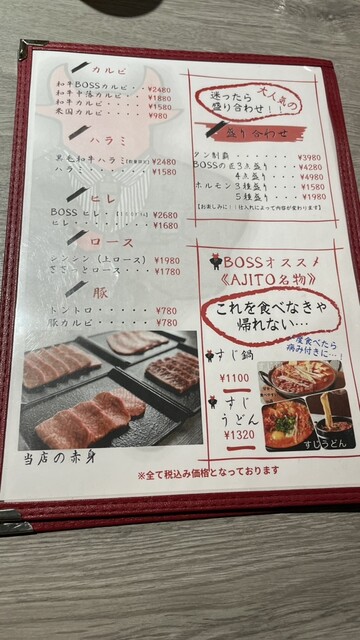 カルビ
和牛BOSSカルビ・・・¥2480
和牛中落カルビ・・・¥1880
和牛カルビ・・・・¥1580
米国カルビ・・・・・¥980
ハラミ
黒毛和牛ハラミ ¥2480
ハラミ・・・・・・¥1580
ヒレ
BOSSヒレ・ ¥2680
ヒレ・・・・・・・¥1680
ロース
シンシン(上ロース) ¥1980
ロース・・・¥1580
豚
トントロ・・・・・¥780
豚カルビ・・・・・¥780
当店の赤身
大人気の
迷ったら
盛り合わせ!!
盛り合わせ
タン制覇・・・・・・¥3980
BOSSの店3点盛り・・¥4280
4点盛り・・・¥4980
ホルモン3種盛り・・・¥1580
5種盛り・・・¥1980
【お楽しみに!!仕入れによって内容が変わります】
BOSSオススメ
《AJITO名物》
これを食べなきゃ
帰れない…
一度食べたら
病み付きに…!
すじ鍋
¥1100
すじ
うどん
¥1320
すじうどん
※全て税込み価格となっております